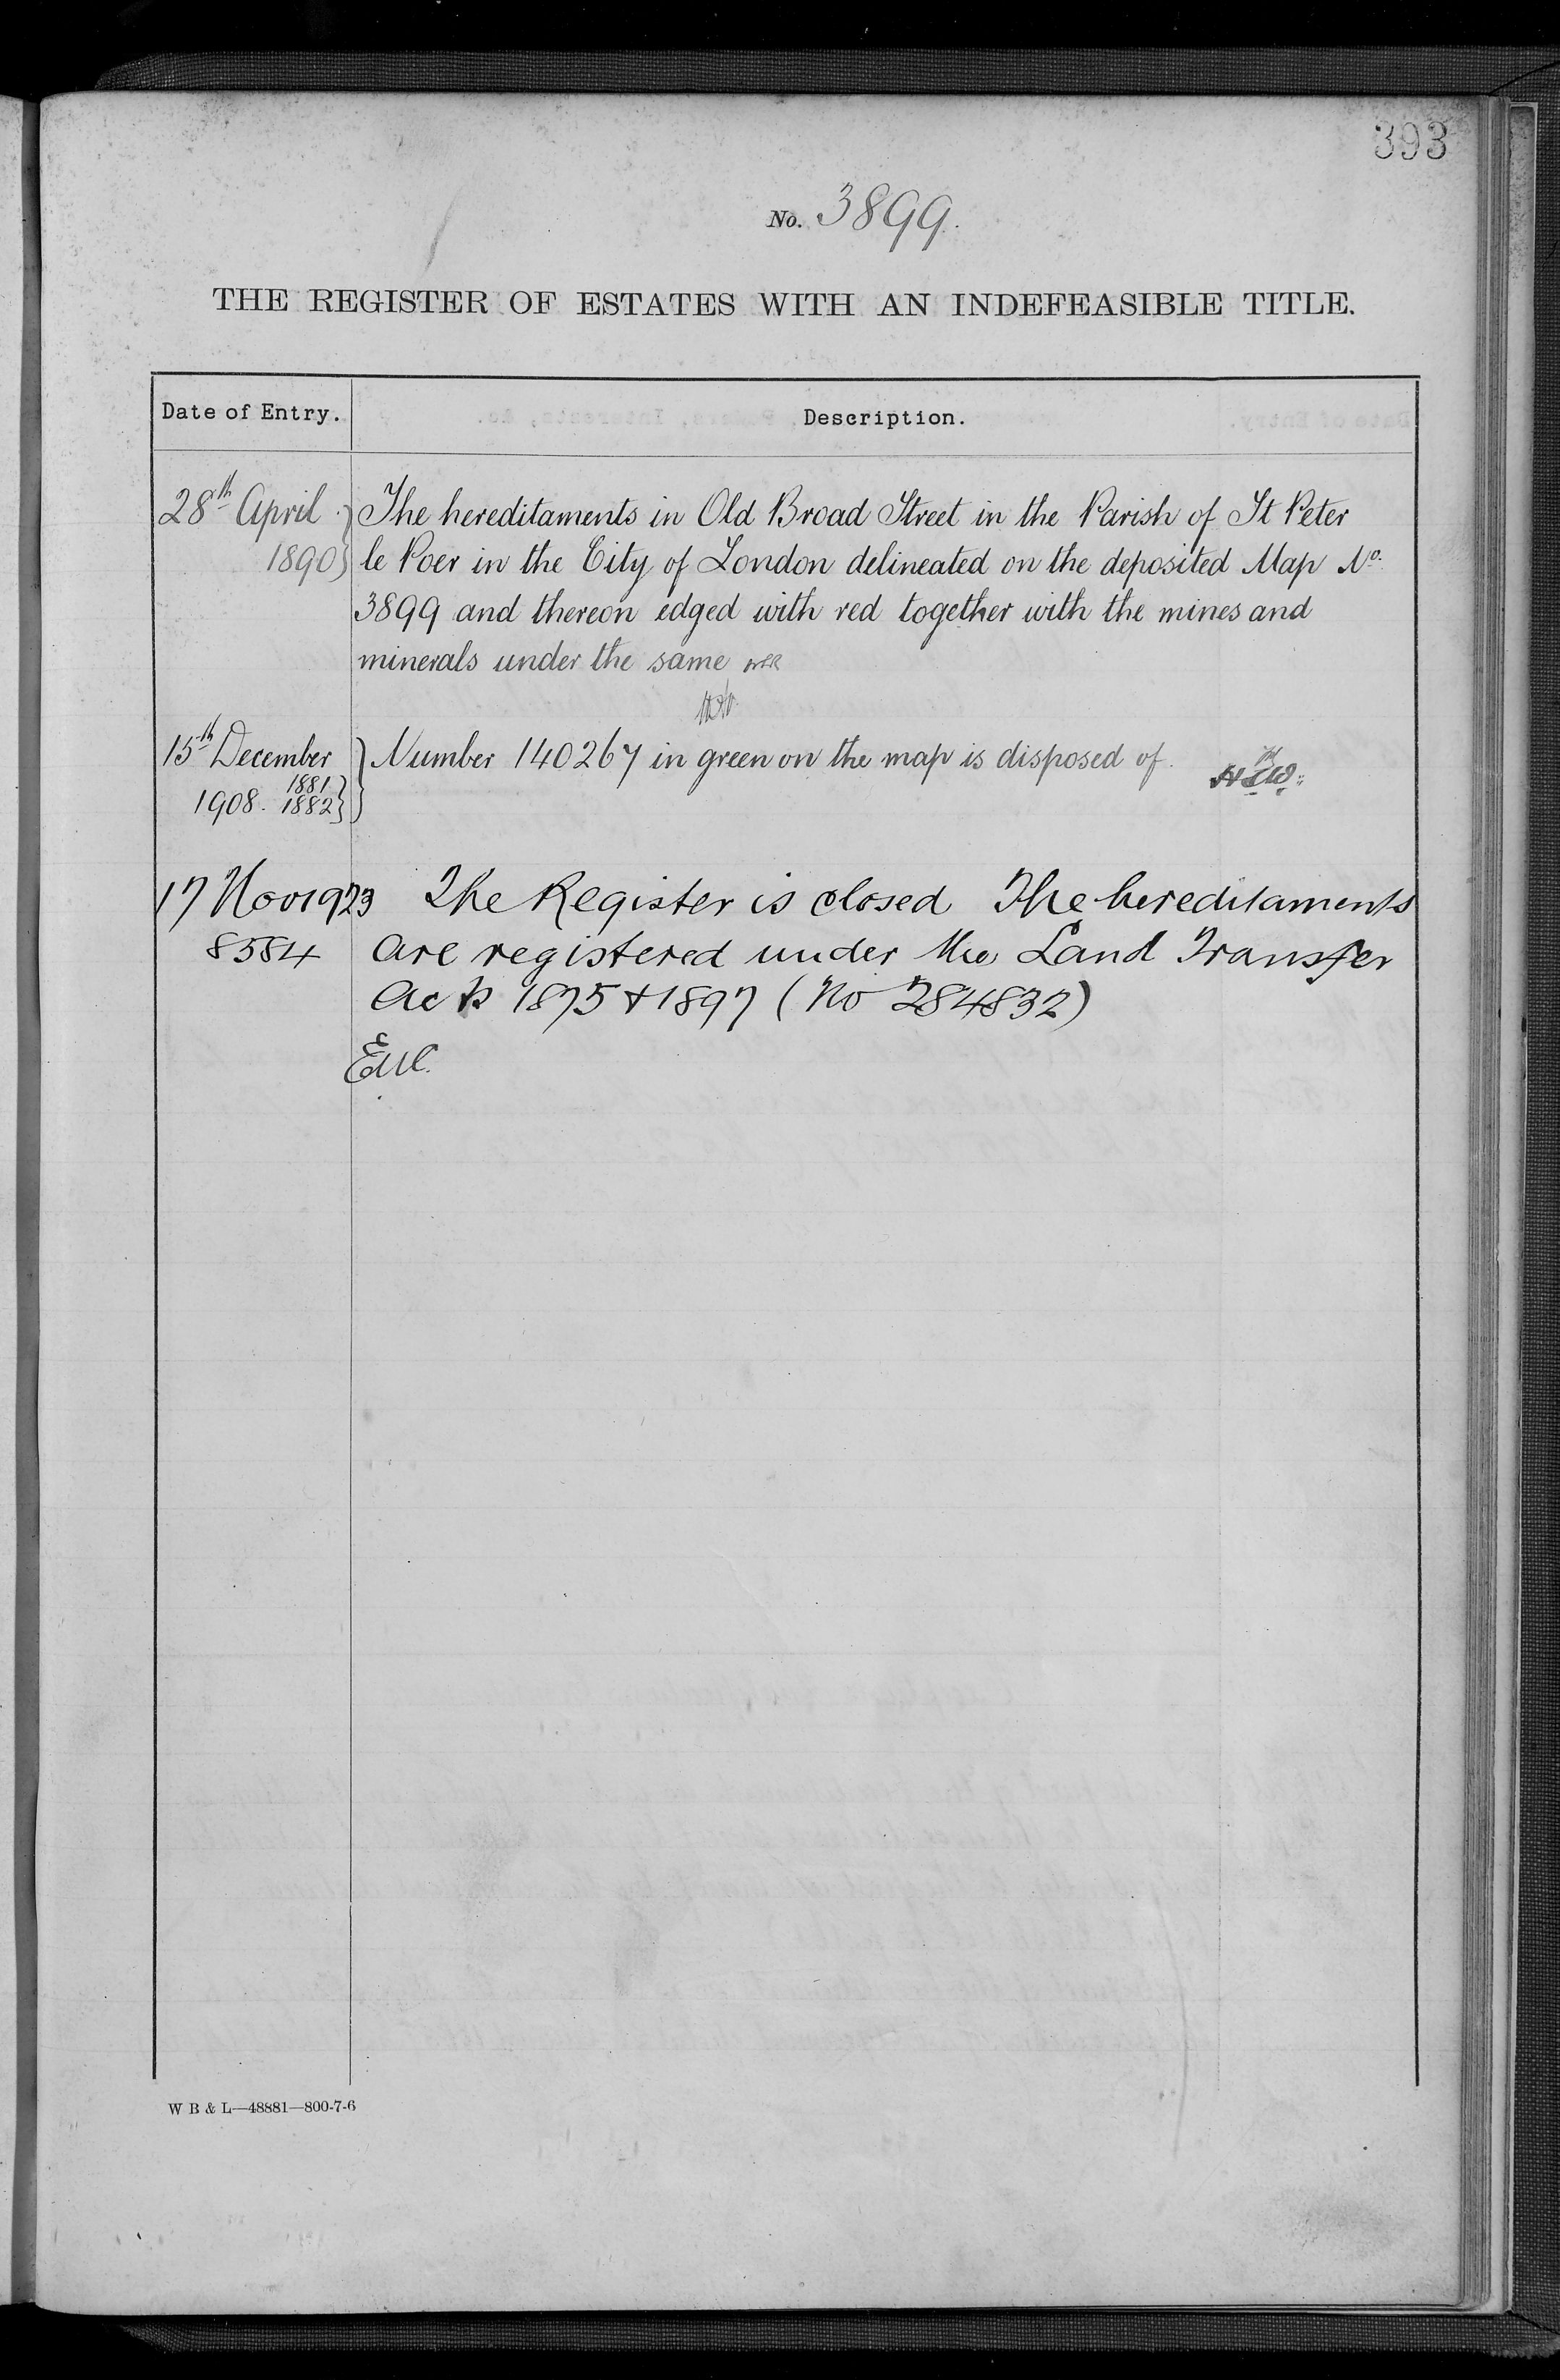 393
No. 3899.
THE REGISTER OF ESTATES WITH AN INDEFEASIBLE TITLE.
Date of Entry. Description.
28th April The hereditaments in Old Broad Street in the Parish of St Peter
1890 le Poer in the City of London delineated on the deposited Map No.
3899 and thereon edged with red together with the mines and
minerals under the same
15th December Number 140267 in green on the map is disposed of.
1881
1908. 1882
17 Nov 1923 The Register is closed The hereditaments
8584 are registered under the Land Transfer
Acts 1875 & 1897 (No 284832)
W B & L—48881—800-7-6